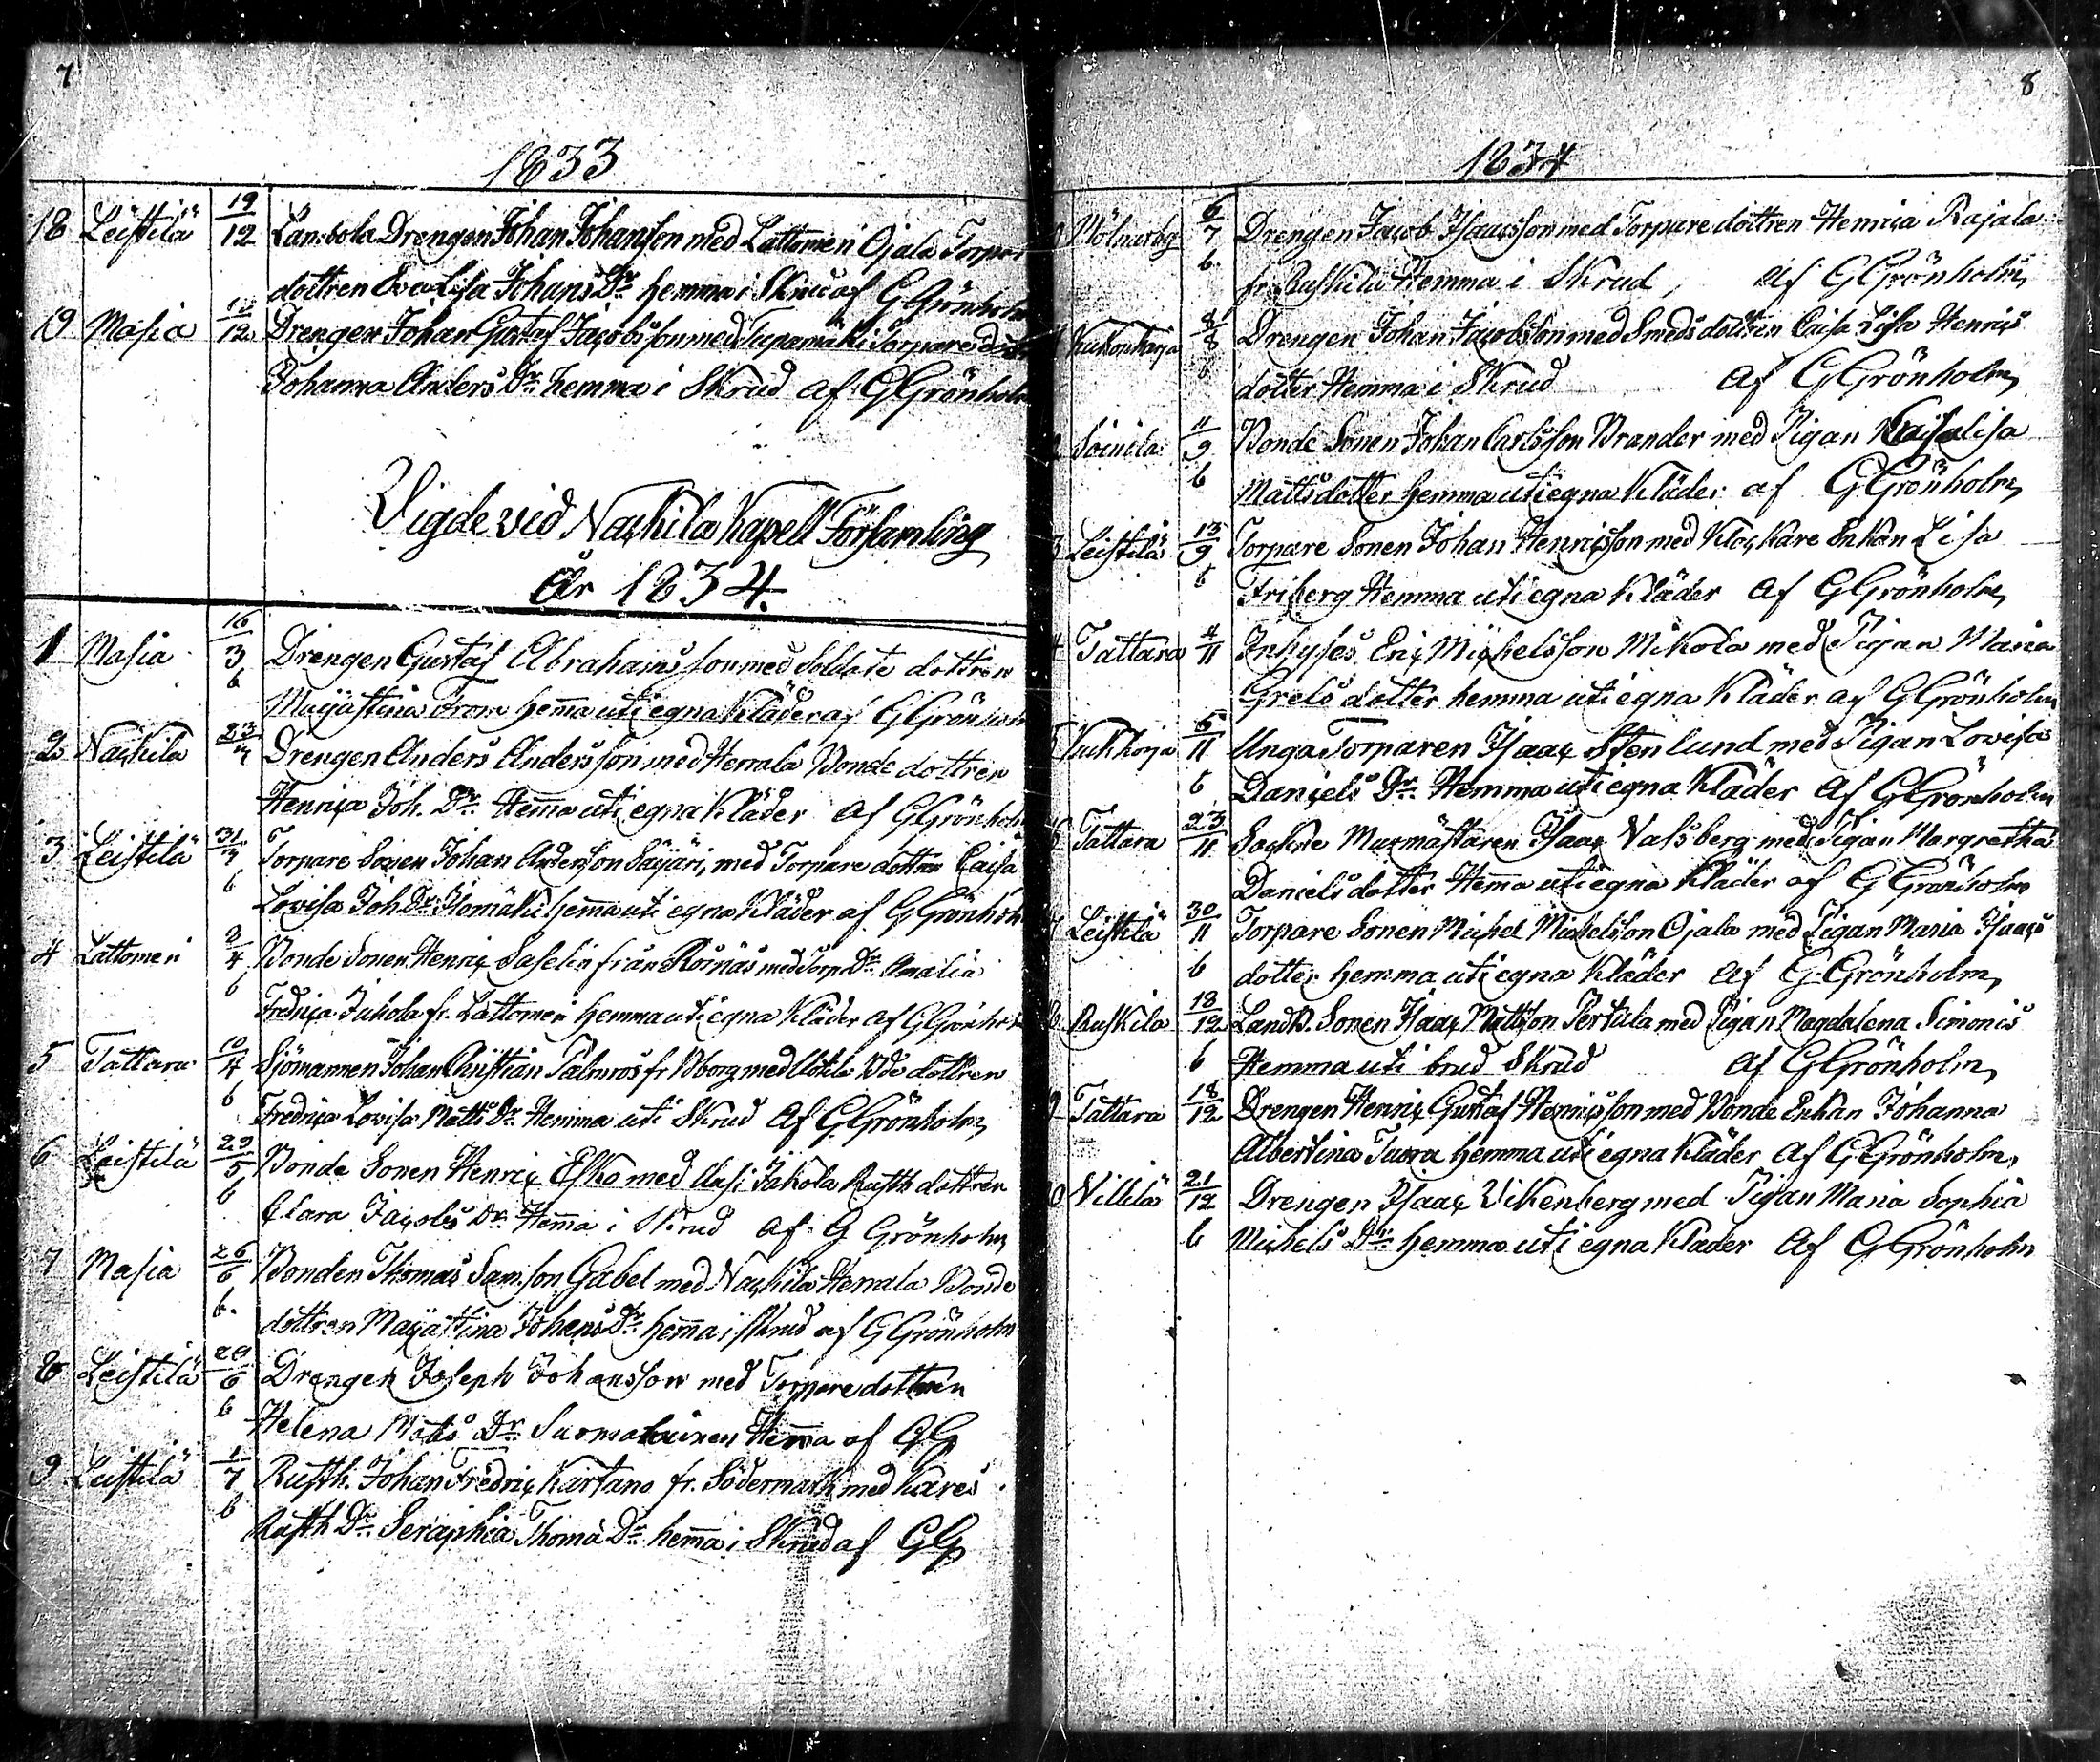 7
1833
18 Leistilä 19/12 Lambola Drengen Johan Johansson med Lattomeri Ojala Torpar
dottren Eva Lisa Johans Dr hemma i Skrud af G Grönholm
19 Masia 12 Drengen Johan Gustaf Jacobsson med Torpare
Johanna Anders Dr hemma i Skrud af G Grönholm
Vigde vid Nackila Kapell Församling
År 1834.
1 Masia 16/3 Drengen Gustaf Abrahamsson med Soldate dottren
6 Maijastina From hema uti egna Kläder af G Grönholm
2 Nackila 23/3 Drengen Anders Andersson med Herrala Bonde dottren
Henrica Joh. Dr Hema uti egna Kläder af G Grönholm
3 Leistilä 31/3 Torpare Sonen Johan Andersson Säyäri, med Torpare dottren Caisa
6 Lovisa Joh Dr Isomäki hema uti egna Kläder af G Grönholm
4 Lattomeri 2/4 Bonde Sonen Henric Saselin från Rosnäs med Torp. Dr Amalia
6 Fredrica Juhola fr. Lattomeri hemma uti egna Kläder af G Grönholm
5 Tattara 10/4 Sjömannen Johan Christian Palmros fr Bborg med Bde dottren
6 Fredrica Lovisa Matts Dr Hemma uti Skrud af G Grönholm
6 Leistilä 29/5 Bonde Sonen Henric Esko med Uusi Jakola Rusth dottren
6 Clara Jacobs Dr Hema i Skrud af G Grönholm
7 Masia 26/6 Bonden Thomas Samsson Gabel med Nackila Herrala Bonde
6. dottren Majastina Johans Dr hema i skrud af G Grönholm
8 Leistilä 6 Drengen Joseph Johansson med Torpare dottren
6 Helena Matts Dr Suomalainen Hema af GG
9 Leistilä 1/7 Rusth. Johan Fredric Kartano fr. Södermark med Kares
6 Rusth Dr Seraphia Thoma Dr hema i Skrud af GG
8
1834
6/7 Drengen Jacob Isacsson med Torpare dottren Henrica Rajala
6. fr. Ruskila Hemma i Skrud, af G Grönholm
8/8 Drengen Johan Jacobsson med Smeds dottren Caisa Lisa Henrics
6 dotter Hemma i Skrud af G Grönholm
Soinila 11/9 Bonde Sonen Johan Carlsson Brander med Pigan Cajsalisa
6 Mattsdotter hemma uti egna Kläder af G Grönholm
Leistilä 13/9 Torpare Sonen Johan Henricsson med Klockare Enkan Lisa
6 Friberg Hemma uti egna Kläder af G Grönholm
Tattara 4/11 Inhyses Eric Michelsson Mikola med Pigan Maria
Grels dotter hemma uti egna Kläder af G Grönholm
5/11 Unga Torparen Isaac Stenlund med Pigan Lovisa
6 Daniels Dr Hemma uti egna Kläder af G Grönholm
Tattara 23/11 Sockne Murmästaren Isaac Valsberg med Pigan Margretha
Daniels dotter Hema uti egna Kläder af G Grönholm
Leistilä 30/11 Torpare Sonen Michel Michelsson Ojala med Pigan Maria Isaacs
6 dotter hemma uti egna Kläder af G Grönholm
Ruskila 18/12 Landb. Sonen Isaac Mattsson Pertula med Pigan Magdalena Simons
6 Hemma uti brud Skrud af G Grönholm
Tattara 18/12 Drengen Henric Gustaf Henricsson med Bonde Enkan Johanna
Albertina Tuora hemma uti egna Kläder af G Grönholm
Villilä 21/12 Drengen Isaac Vikenberg med Pigan Maria Sophia
6 Michels Dr hemma uti egna Kläder af G Grönholm